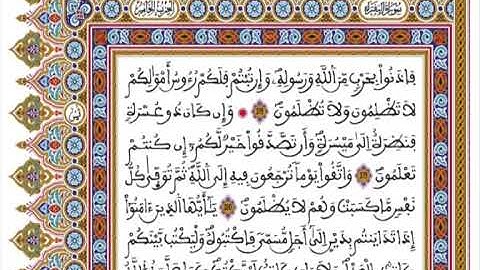 سورة البقرة
الحزب الخامس
فَاذَنُواْ بِحَرْبٖ مِّنَ اَللَّهِ وَرَسُولِهِۦ وَإِن تُبْتُمْ فَلَكُمْ رُءُوسُ أَمْوَٰلِكُمْ
لَا تَظْلِمُونَ وَلَا تُظْلَمُونَ وَإِن كَانَ ذُو عُسْرَةٖ
فَنَظِرَةٌ اِلَىٰ مَيْسُرَةٖ وَأَن تَصَّدَّقُواْ خَيْرٞ لَّكُمُۥ إِن كُنتُمْ
تَعْلَمُونَ وَاتَّقُواْ يَوْماٗ تُرْجَعُونَ فِيهِ إِلَى اَللَّهِ ثُمَّ تُوَفَّىٰ كُلُّ
نَفْسٖ مَّا كَسَبَتْ وَهُمْ لَا يُظْلَمُونَ يَٰأَيُّهَا اَلذِينَ ءَامَنُواْ
إِذَا تَدَايَنتُم بِدَيْنٍ اِلَىٰ أَجَلٖ مُّسَمّٗى فَاكْتُبُوهُ وَلْيَكْتُب بَّيْنَكُمْ